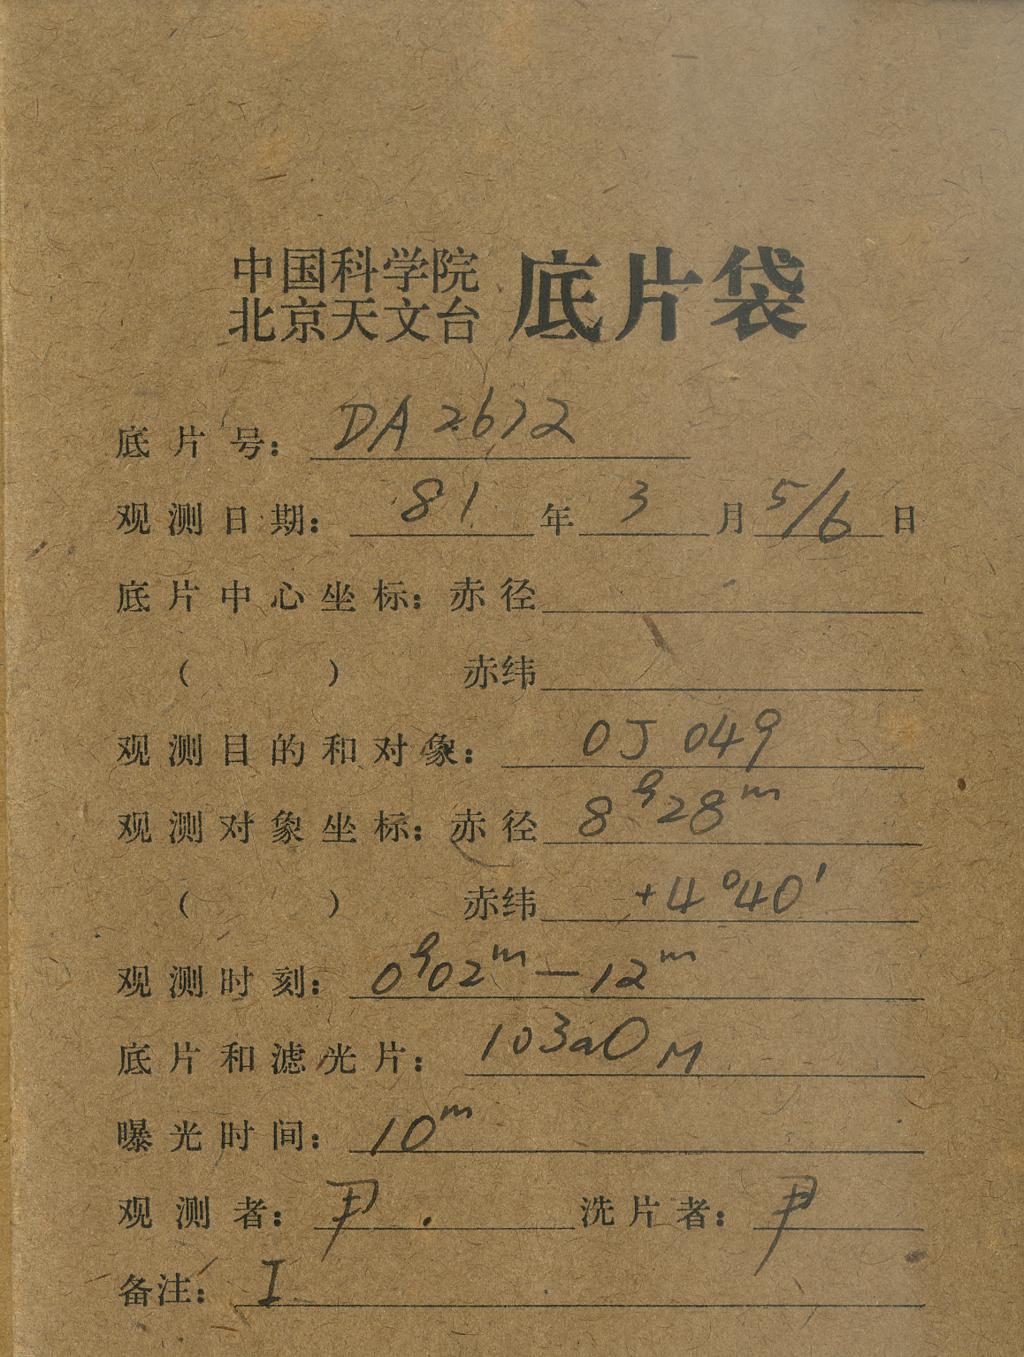 中国科学院
北京天文台 底片袋
底片号： DA 2672
观测日期： 81 年 3 月 5/6 日
底片中心坐标：赤径
（ ） 赤纬
观测目的和对象： OJ 049
观测对象坐标：赤径 8h28m
（ ） 赤纬 +4°40′
观测时刻： 0h02m—12m
底片和滤光片： 103aO M
曝光时间： 10m
观测者： 尹. 洗片者： 尹
备注： I